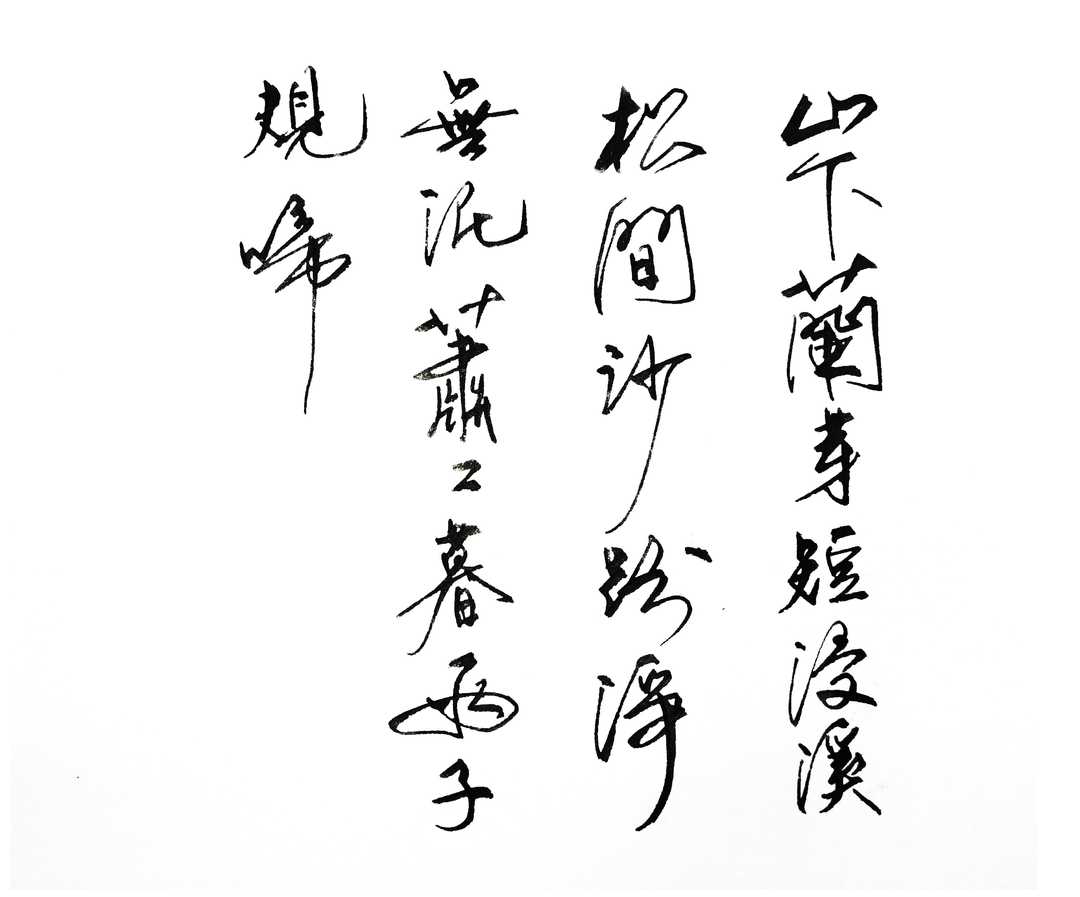 山下蘭芽短浸溪
松間沙路淨
無泥蕭〻暮雨子
規啼